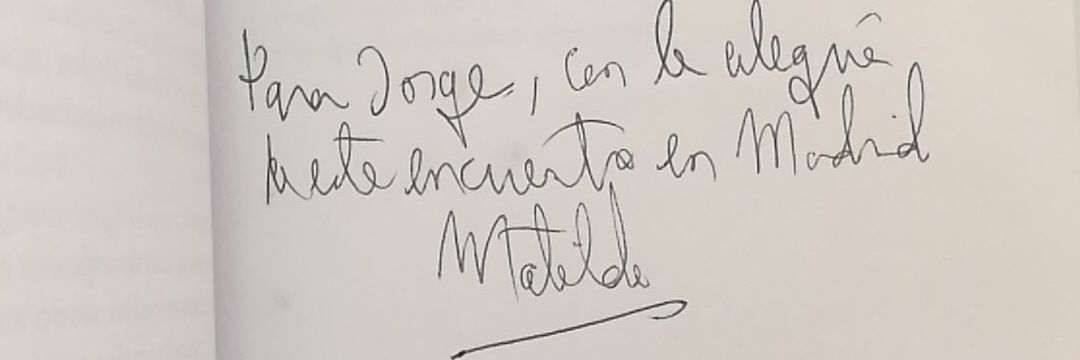 Para Jorge, con la alegría
de este encuentro en Madrid
Matilde